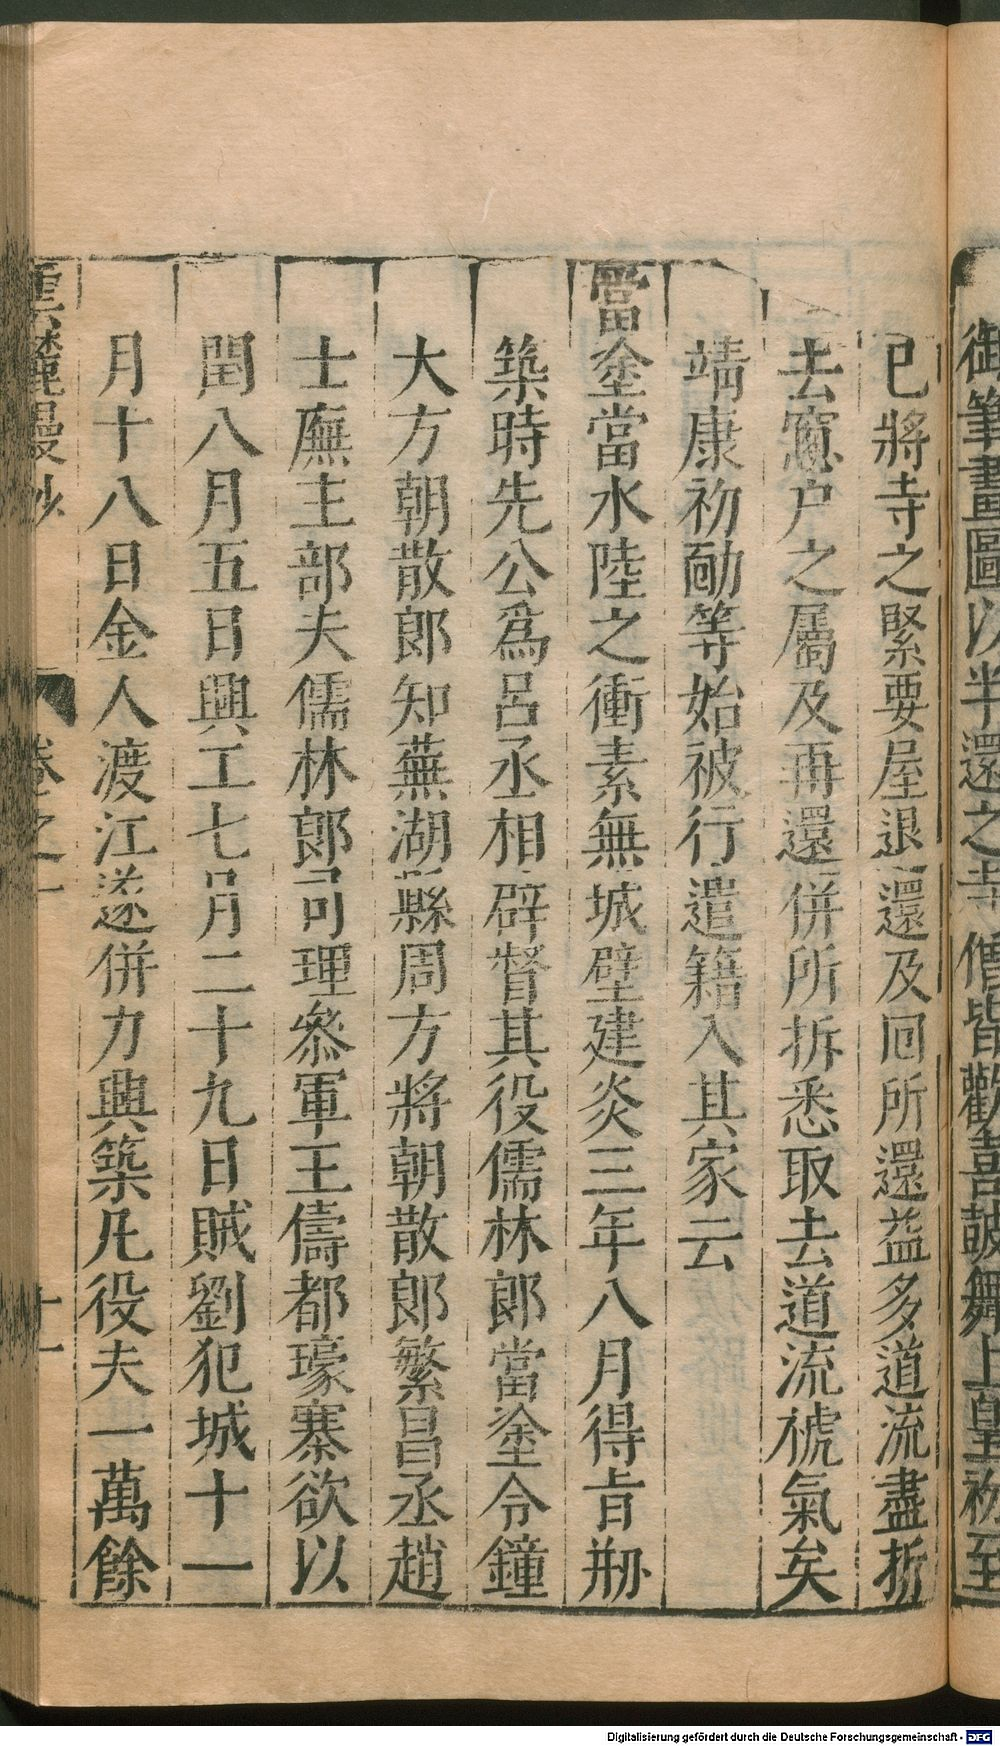 御筆畫圖以半還之寺僧皆歡喜鼓舞上皇初至
已將寺之緊要屋退還及回所還益多道流盡折
去窻户之屬及再還併所拆悉取去道流褫氣矣
靖康初勔等始被行遣籍入其家云
當塗當水陸之衝素無城壁建炎三年八月得旨刱
築時先公爲呂丞相辟督其役儒林郎當塗令鐘
大方朝散郎知蕪湖縣周方將朝散郎繁昌丞趙
士廡主部夫儒林郎司理叅軍王儔都壕寨欲以
閏八月五日興工七月二十九日賊劉犯城十一
月十八日金人渡江遂併力興築凡役夫一萬餘
雲麓漫抄 卷之一 十一
Digitalisierung gefördert durch die Deutsche Forschungsgemeinschaft - DFG